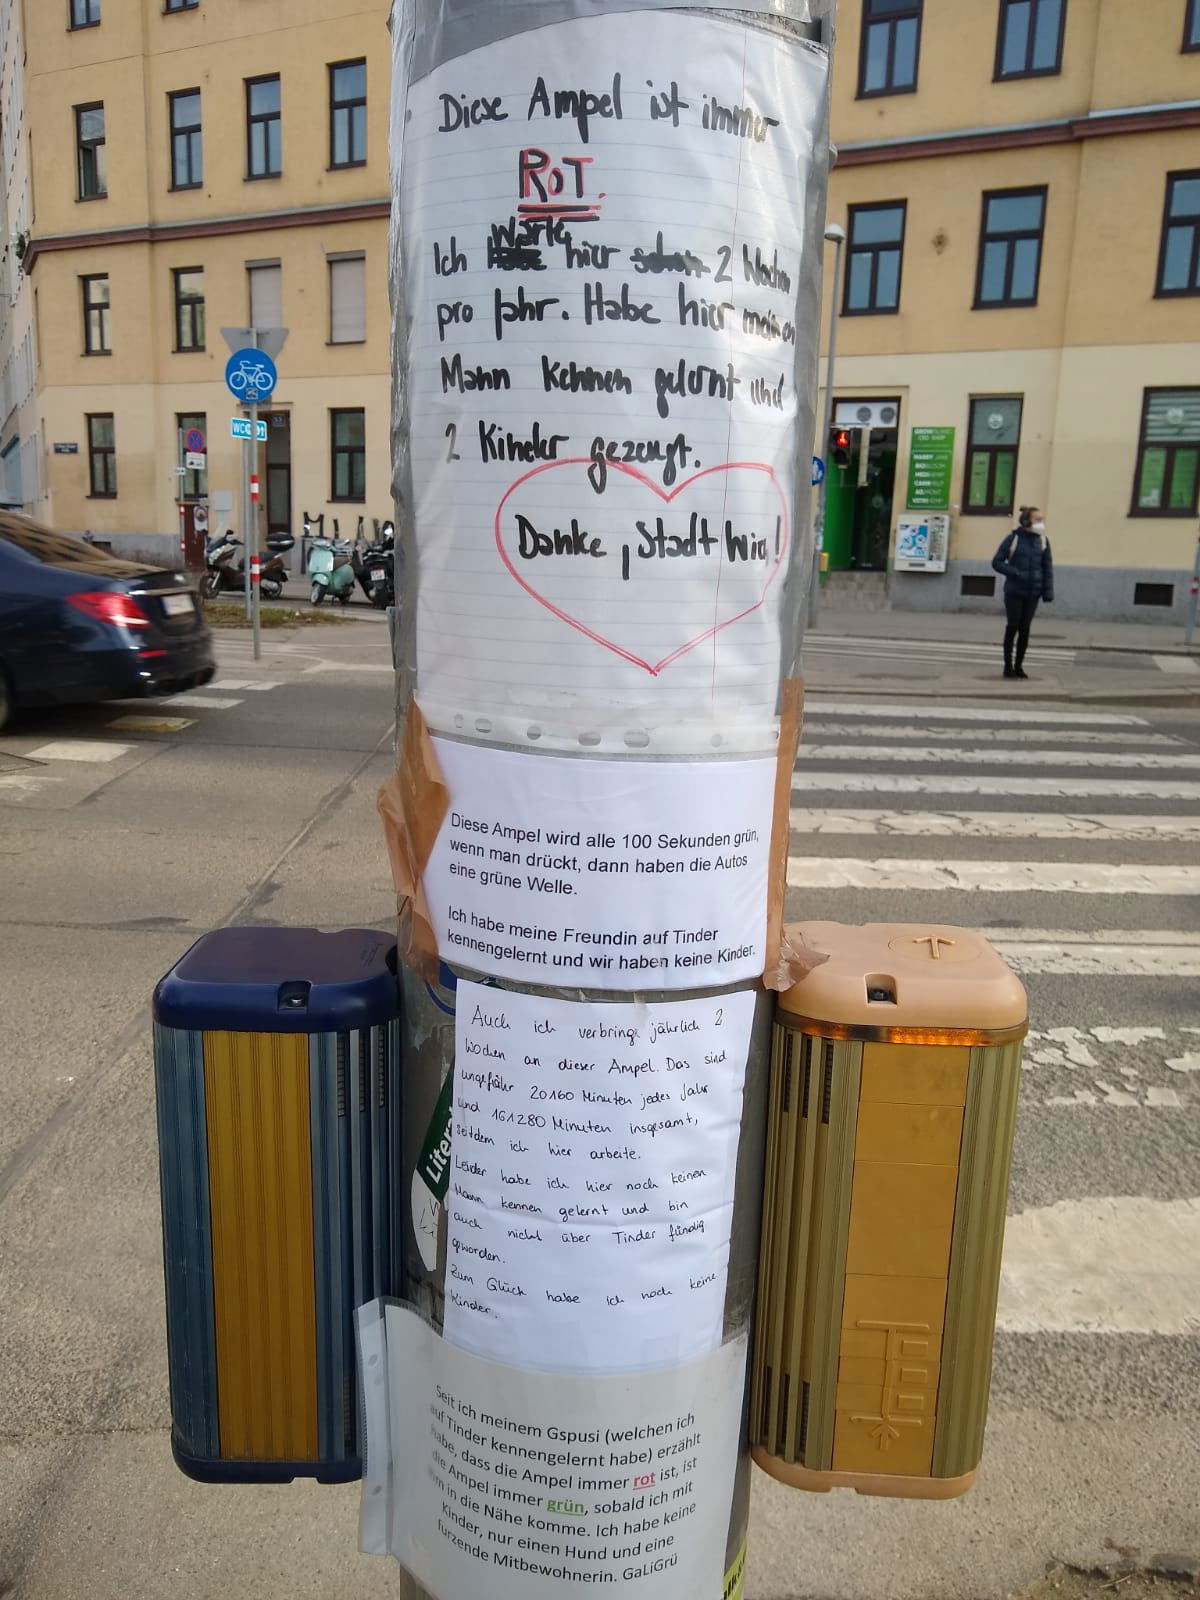 Diese Ampel ist immer
ROT.
Ich warte hier 2 Wochen
pro Jahr. Habe hier meinen
Mann kennen gelernt und
2 Kinder gezeugt.
Danke, Stadt Wien!
Diese Ampel wird alle 100 Sekunden grün,
wenn man drückt, dann haben die Autos
eine grüne Welle.
Ich habe meine Freundin auf Tinder
kennengelernt und wir haben keine Kinder.
Auch ich verbringe jährlich 2
Wochen an dieser Ampel. Das sind
ungefähr 20160 Minuten jedes Jahr
und 161280 Minuten insgesamt,
seitdem ich hier arbeite.
Leider habe ich hier noch keinen
Mann kennen gelernt und bin
auch nicht über Tinder fündig
geworden.
Zum Glück habe ich noch keine
Kinder.
Seit ich meinem Gspusi (welchen ich
auf Tinder kennengelernt habe) erzählt
habe, dass die Ampel immer rot ist, ist
die Ampel immer grün, sobald ich mit
ihm in die Nähe komme. Ich habe keine
Kinder, nur einen Hund und eine
furzende Mitbewohnerin. GaLiGrü
Liter
WC